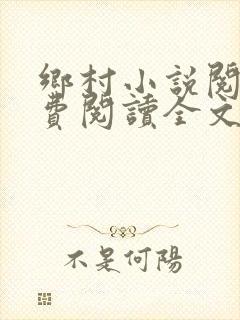 鄉村小説閱
費閱讀全文
不是何陽